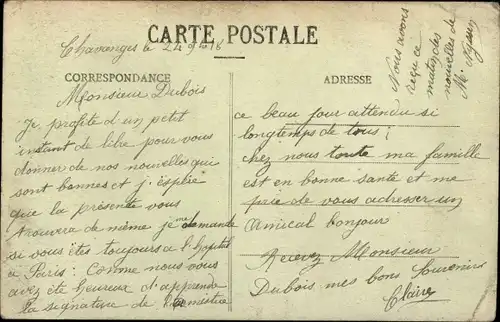 CARTE POSTALE
Chavanges le 24 9bre 18
CORRESPONDANCE
ADRESSE
Monsieur Dubois
Je profite d'un petit
instant de libre pour vous
donner de nos nouvelles qui
sont bonnes et j'éspère
que la présente vous
trouvera de même je me demande
si vous êtes toujours a l'hopital
a Paris: Comme nous vous
avez été heureux d'apprendre
la signature de l'armistice
ce beau jour attendu si
longtemps de tous;
chez nous toute ma famille
est en bonne santé et me
prie de vous adresser un
Amical bonjour
Recevez Monsieur
Dubois mes bons Souvenirs
Claire
Nous avons
reçu ce
matin des
nouvelles de
M.